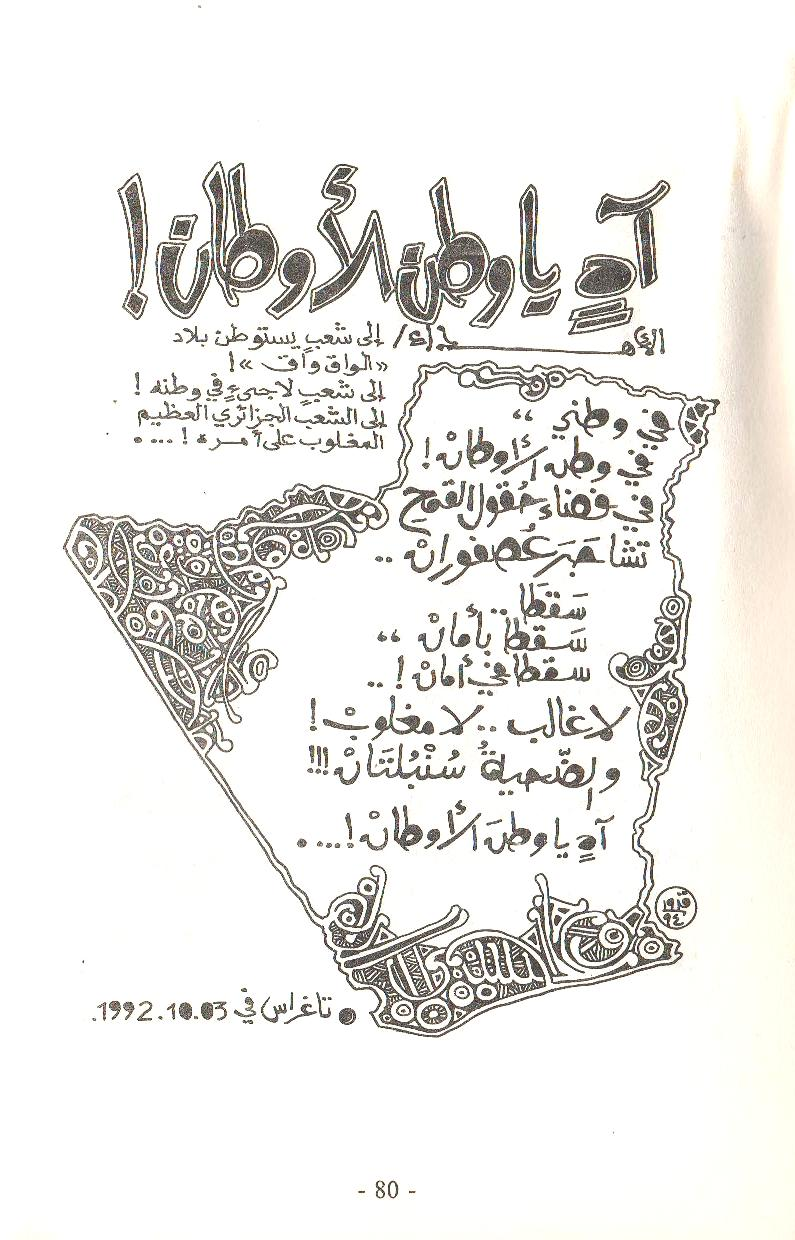 آهٍ يا وطن الأوطان!
الإهـــداء/ إلى شعبٍ يستوطن بلاد
«الواق واق»!
إلى شعبٍ لاجىءٍ في وطنه!
إلى الشعب الجزائري العظيم
المغلوب على أمره!....
في وطني ،،
في وطن الأوطانْ!
في فضاء حُقول القمح
تشاجَرَ عُصفورانْ..
سَقَطَا
سَقطا بأمانْ ،،
سقطا في أمانْ!..
لا غالب.. لا مغلوبْ!
والضّحيةُ سُنْبُلتَانْ!!!
آهٍ يا وطنَ الأوطانْ!....
قرور
94
● تاغراس في 1992.10.03.
- 80 -